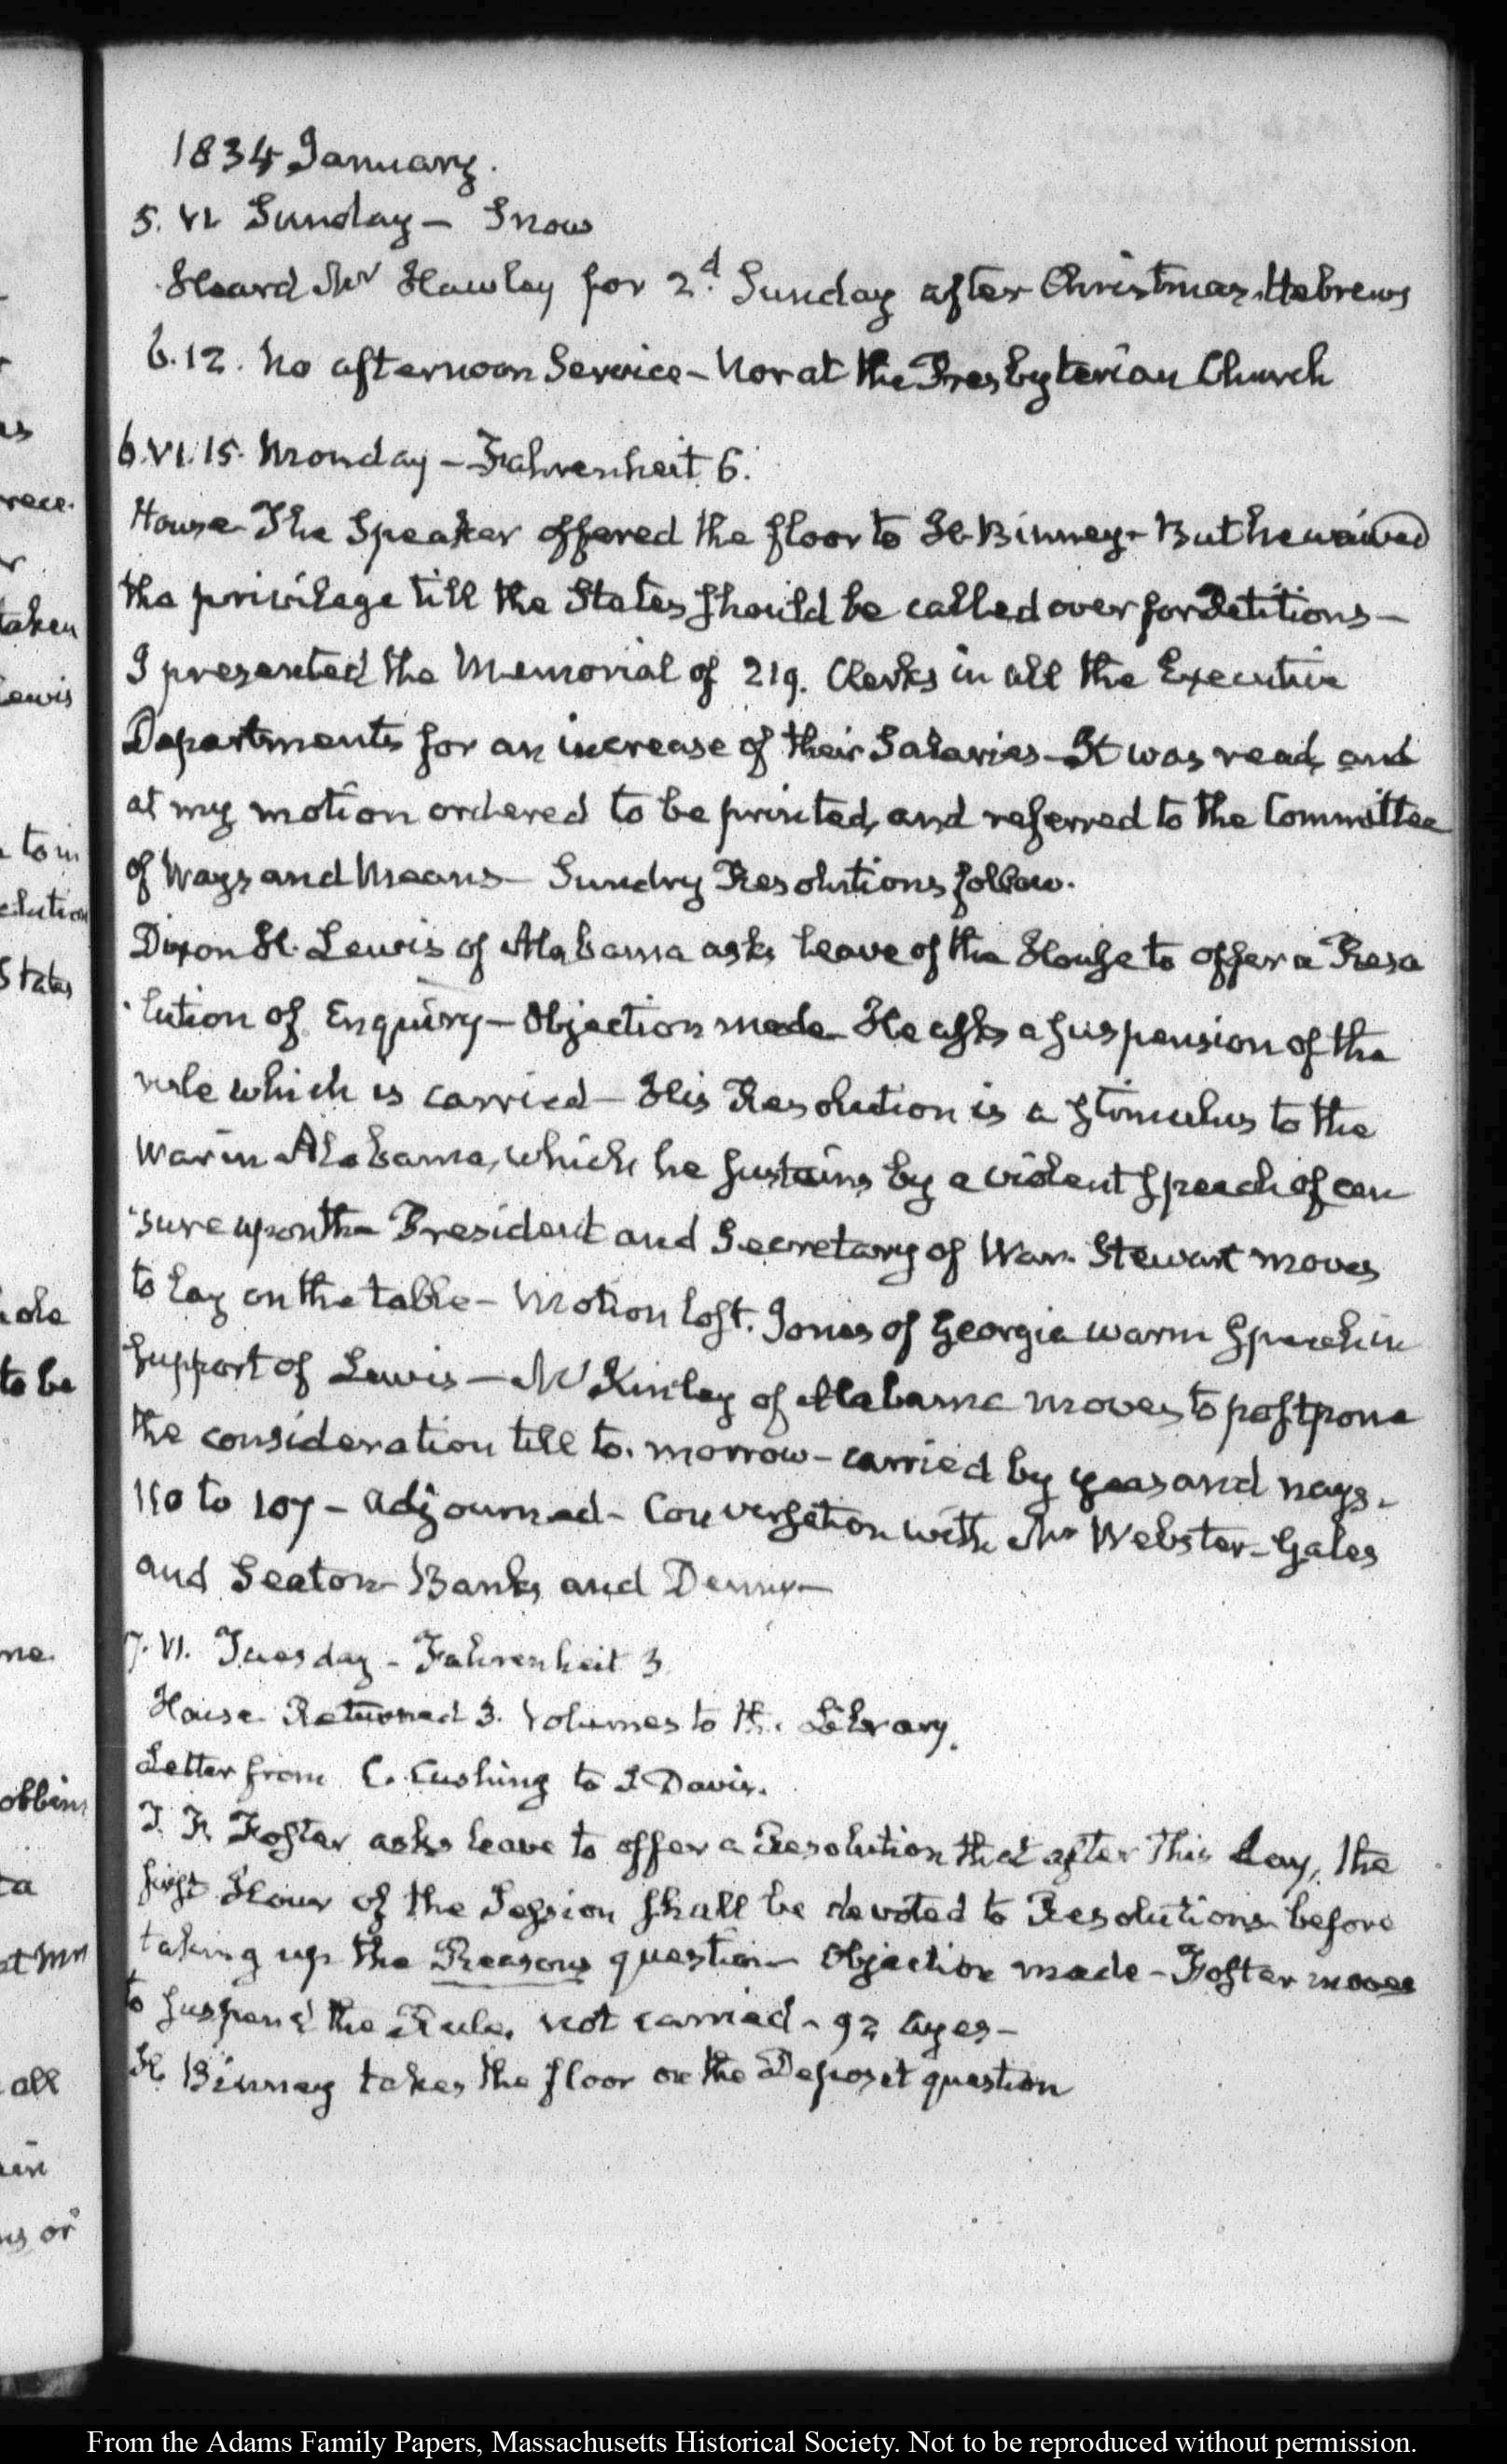 1834 January.
5. VI. Sunday – Snow
Heard Mr Hawley for 2d. Sunday after Christmas. Hebrews
6.12. No afternoon Service – Nor at the Presbyterian Church
6. VI. 15. Monday – Fahrenheit 6.
House – The Speaker offered the floor to H. Binney – But he waived
the privilege till the States should be called over for Petitions –
I presented the Memorial of 219. Clerks in all the Executive
Departments for an increase of their Salaries – It was read, and
at my motion ordered to be printed, and referred to the Committee
of Ways and Means – Sundry Resolutions follow.
Dixon H. Lewis of Alabama asks leave of the House to offer a Reso
lution of Enquiry – Objection made – He asks a suspension of the
rule which is carried – His Resolution is a stimulus to the
war in Alabama, which he sustains by a violent speech of cen
sure upon the President and Secretary of War. Stewart moves
to lay on the table – Motion lost. Jones of Georgia warm speech in
support of Lewis – McKinley of Alabama moves to postpone
the consideration till to-morrow – carried by yeas and nays.
110 to 107 – adjourned – Conversation with Mr Webster – Gales
and Seaton – Banks and Denny –
7. VI. Tuesday – Fahrenheit 3
House. Returned 3. Volumes to the Library.
Letter from C. Cushing to J Davis.
T. F. Foster asks leave to offer a Resolution that after this day, the
first Hour of the Session shall be devoted to Resolutions before
taking up the Reasons question – Objection made – Foster moves
to suspend the Rule, not carried – 92 ayes –
H. Binney takes the floor on the Deposit question
rece.
taken
Lewis
to in
States
to be
all
From the Adams Family Papers, Massachusetts Historical Society. Not to be reproduced without permission.